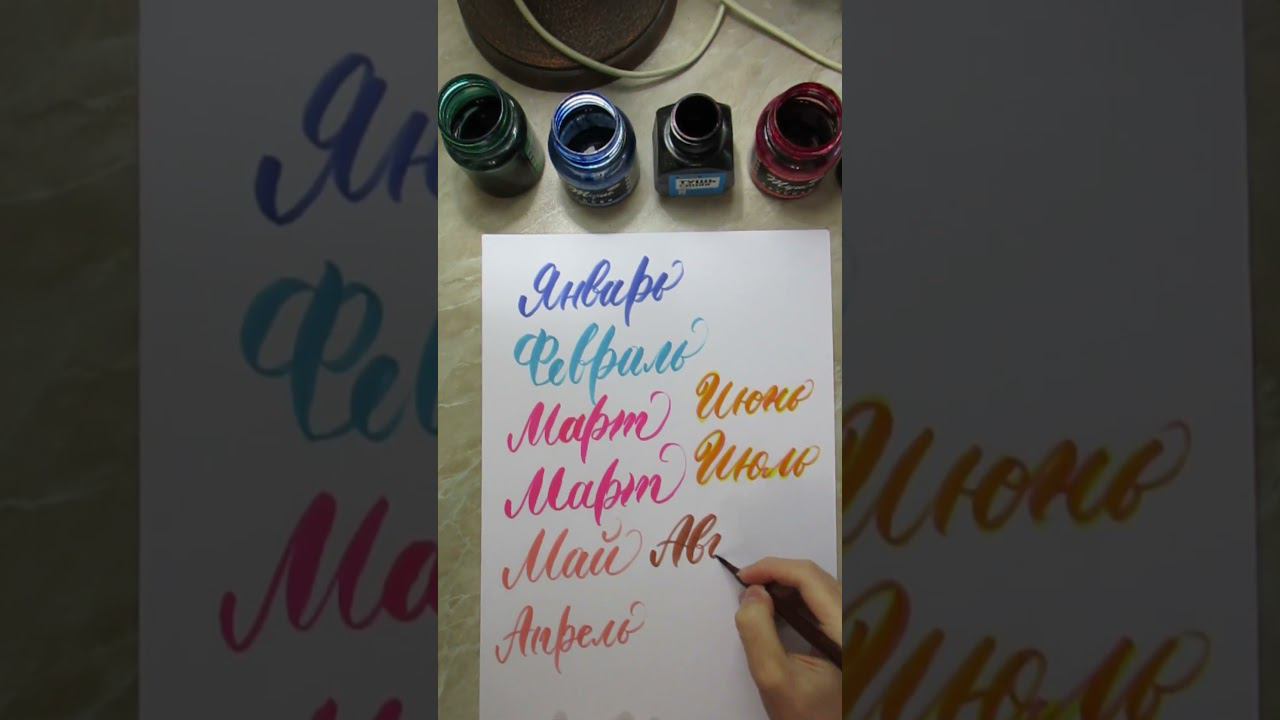 ТУШЬ
Январь
Февраль
Март
Март
Май
Апрель
Июнь
Июль
Ав